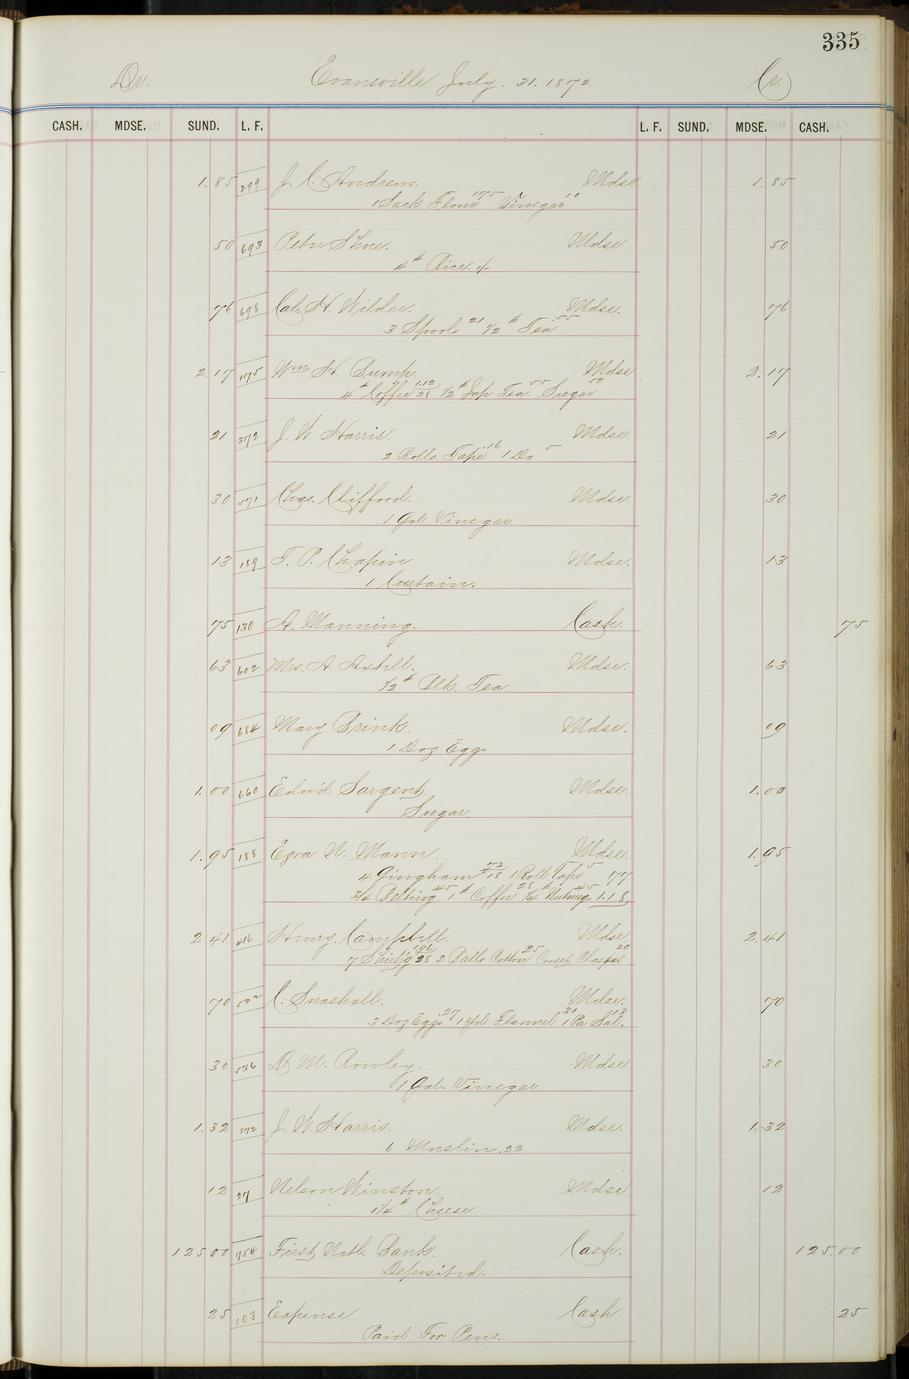 335
Dr. Evansville July. 31. 1872 Cr.
CASH. MDSE. SUND. L. F. L. F. SUND. MDSE. CASH.
1.85 299 J. C. Andrews. Mdse 1.85
1 Sack Flour 175 Vinegar 10
50 693 Peter Shne. Mdse 50
4 # Rice
76 698 Cal. H. Wilder. Mdse. 76
3 Spools 21 1/2 # Tea 55
2.17 175 Wm H. Bump. Mdse 2.17
4 # Coffee 28 1.12 1/2 # Jap Tea 55 Sugar 50
21 372 J. W. Harris. Mdse. 21
2 Rolls Tape 16 1 Do 5
30 571 Chas. Clifford. Mdse. 30
1 Gal Vinegar
13 189 T. P. Chapin Mdse. 13
1 Curtain.
75 130 A. Manning. Cash. 75
63 602 Mrs. A. Axtell. Mdse. 63
1/2 # Blk. Tea.
09 684 Mary Brink. Mdse. .09
1 Doz Eggs
1.00 660 Edwd Sargent. Mdse. 1.00
Sugar
1.95 188 Ezra W. Mann. Mdse. 1.95
4 Gingham 18 72 1 Roll Tape 5 77
3/4 Belting 45 1 # Coffee 28 1/4 # Nutmeg 45 1.18
2 41 616 Henry Campbell. Mdse 2.41
7 Shirt'g 28 196 2 Balls Cotton 25 Corset Clasps 20
70 522 C. Snashall. Mdse. 70
3 Doz Eggs 27 1 yd Flannel 30 1 Pa Sal. 13
30 536 D M. Rowley. Mdse 30
1 Gal. Vinegar
1.32 372 J. W. Harris. Mdse. 1.32
6 Muslin .22
12 27 Nelson Winston. Mdse 12
1 1/4 # Cheese
125 00 754 First Natl. Bank. Cash. 125.00
Deposited.
25 103 Expense Cash 25
Paid For Pens.